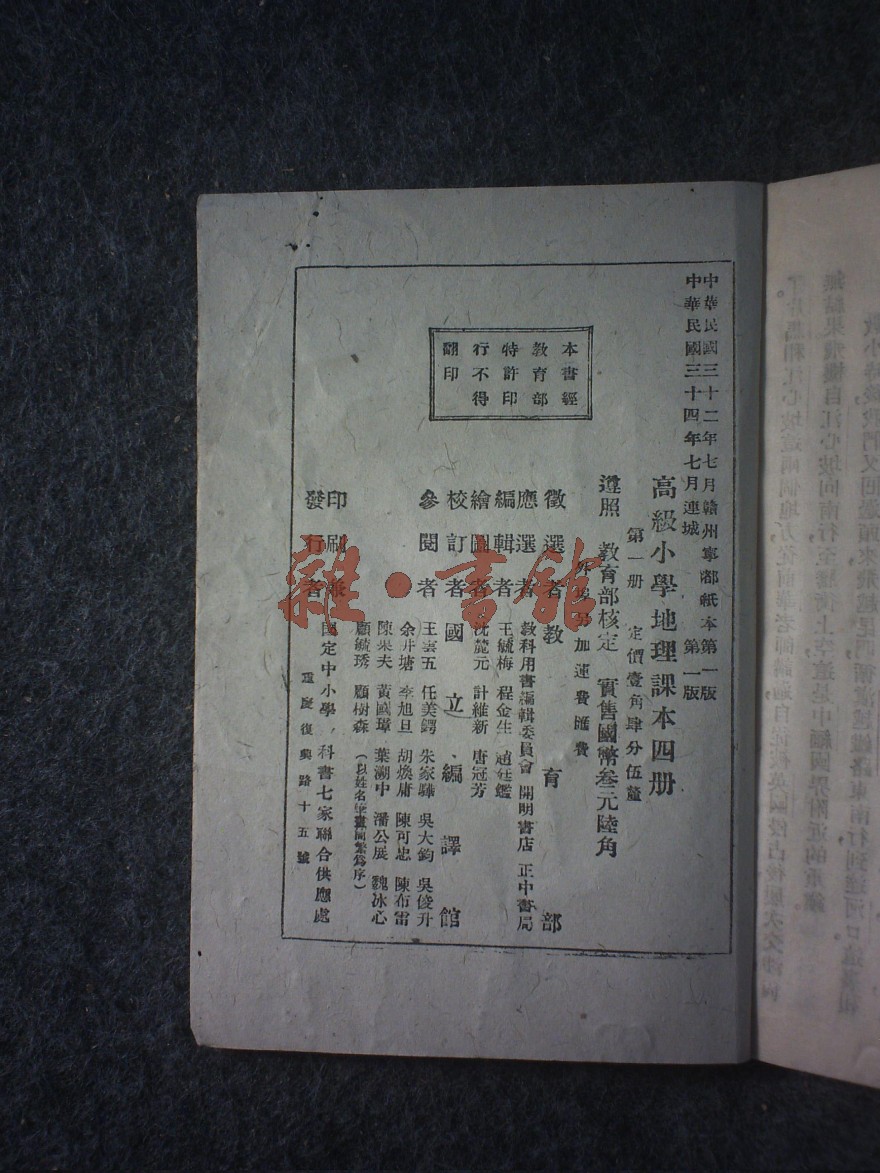 中華民國三十二年七月贛州寧都紙本第一版
中華民國三十四年七月連城 第一版
高級小學地理課本四册
第一册 定價壹角肆分伍釐
遵照 教育部核定 實售國幣叁元陸角
加運費匯費
本書經
教育部
特許印
行不得
翻印
徵選者 教育部
應選者 教科用書編輯委員會 開明書店 正中書局
編輯者 王毓梅 程金生 趙廷鑑
繪圖者 沈麓元 計維新 唐冠芳
校訂者 國立編譯館
參閱者 王雲五 任美鍔 朱家驊 吳大鈞 吳俊升
余井塘 李旭旦 胡煥庸 陳可忠 陳布雷
陳果夫 黃國璋 葉溯中 潘公展 魏冰心
顧毓琇 顧樹森 (以姓名筆畫簡繁爲序)
印刷兼
發行者 國定中小學 科書七家聯合供應處
重慶復興路十五號
雜·書館